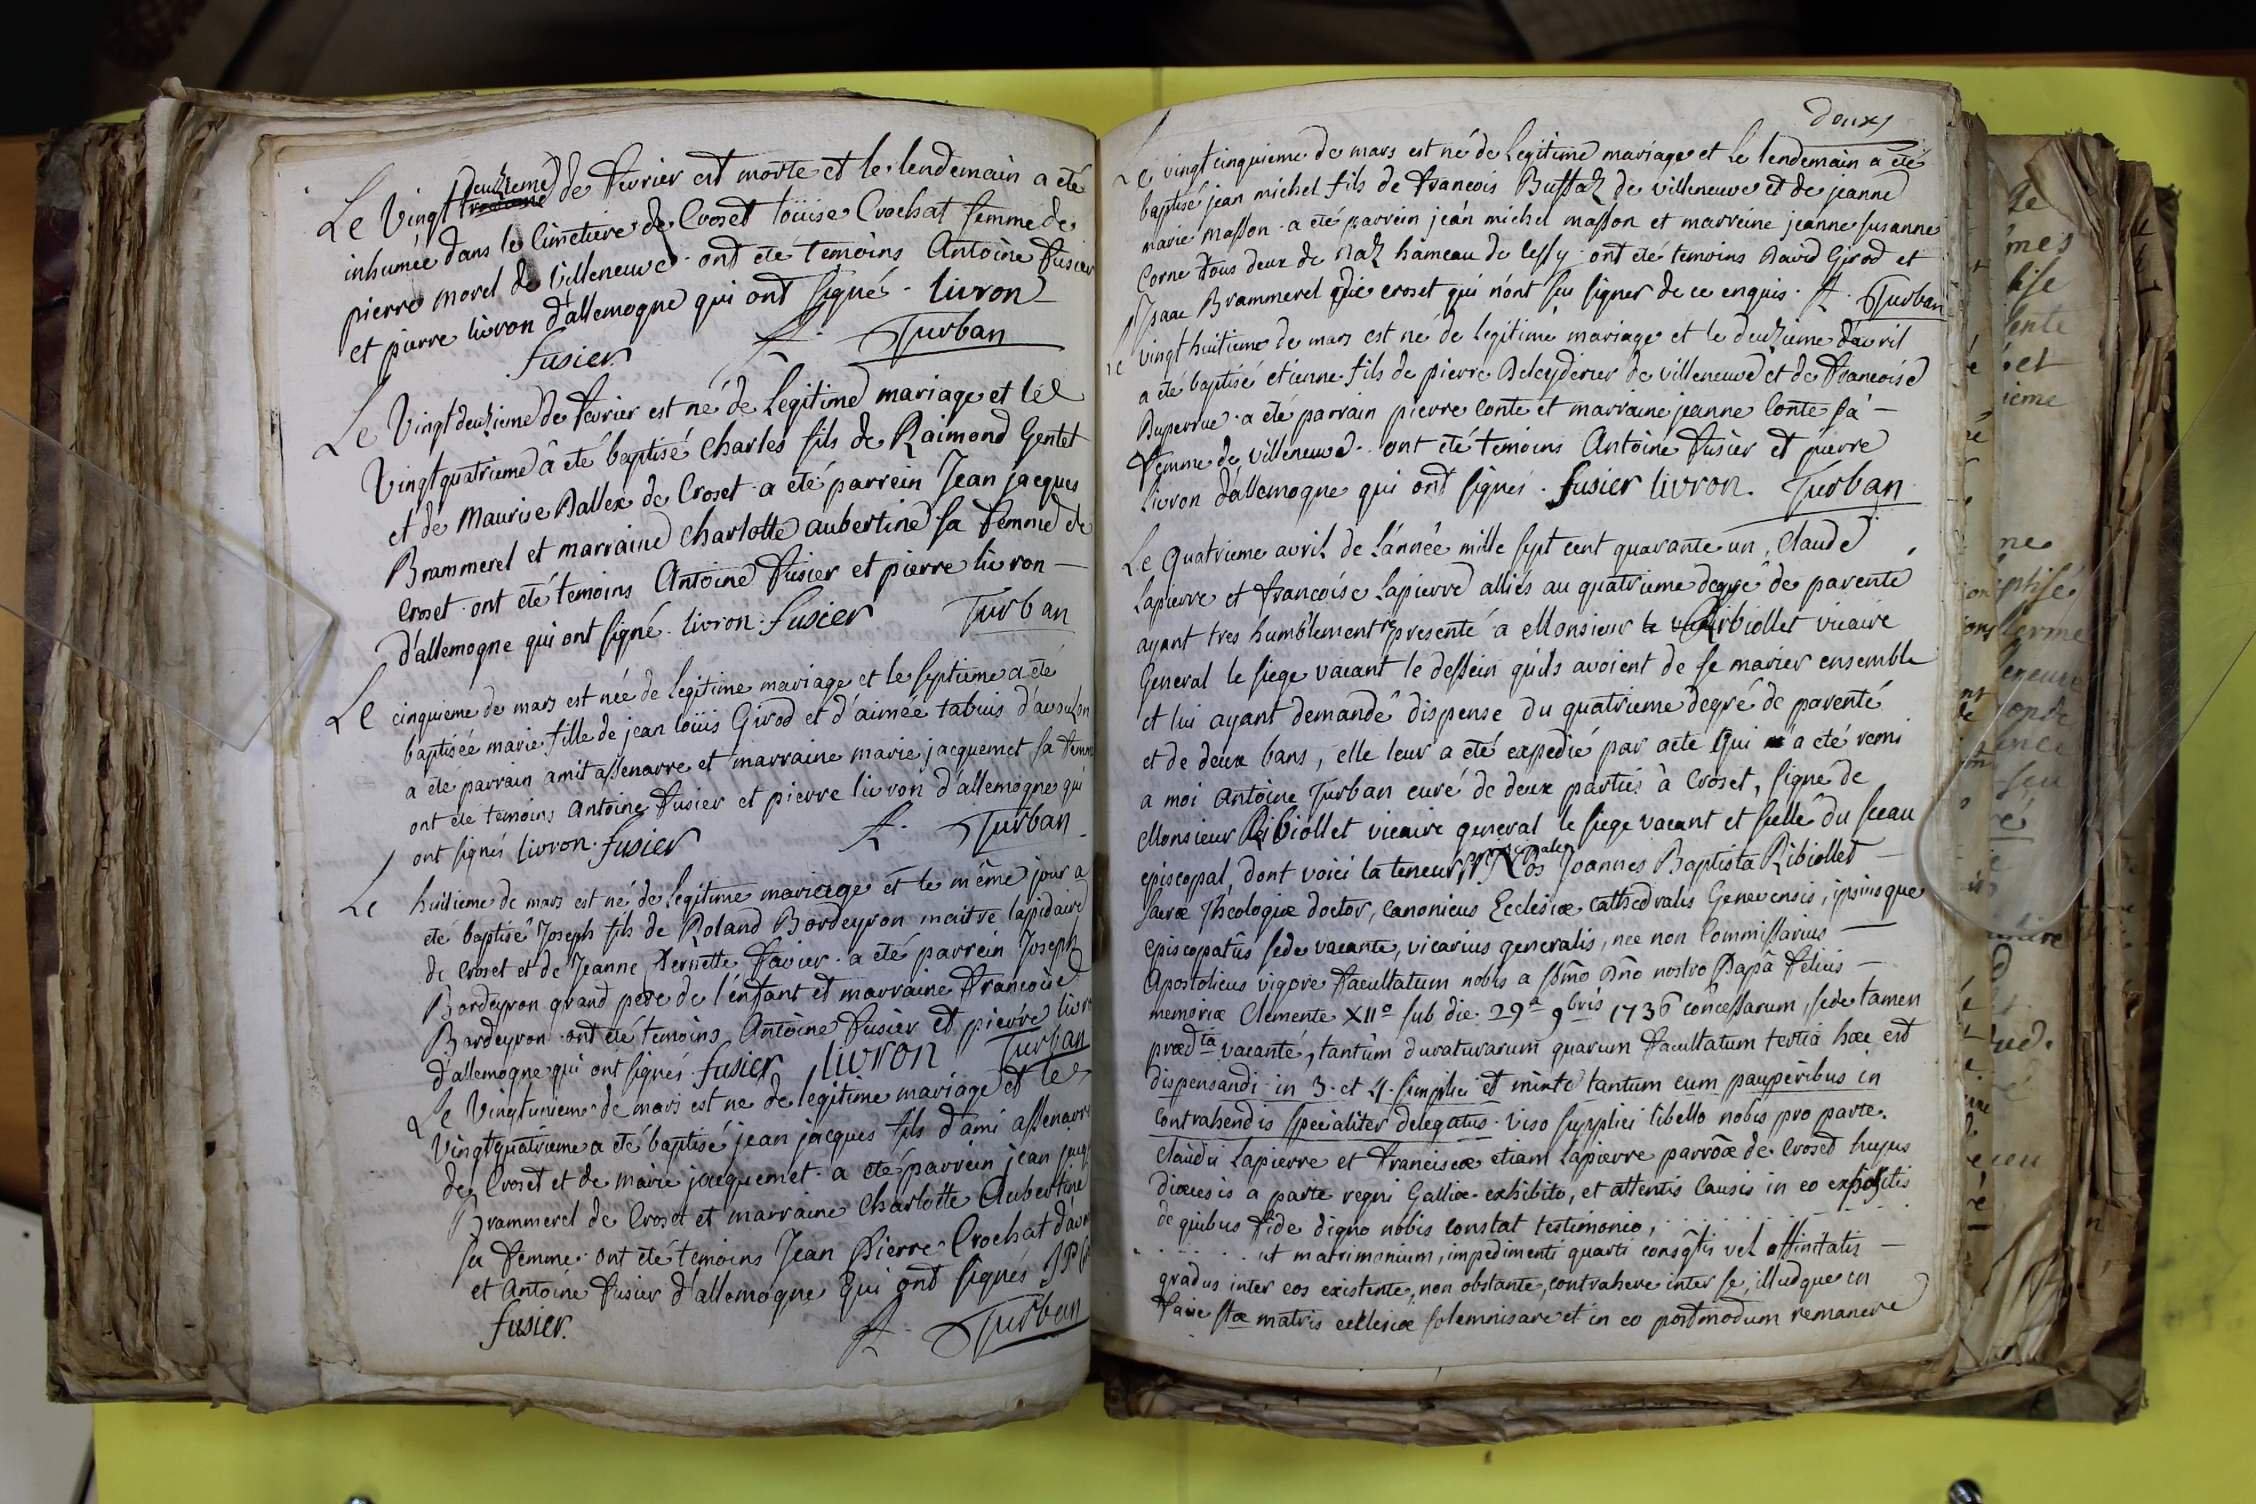 Le Vingt deuzieme de fevrier est morte et le lendemain a eté
inhumée dans le Cimetiere de Croset loüise Crochat femme de
pierre morel de Villeneuve. ont eté temoins Antoine fusier
et pierre livron d'allemogne qui ont signé. livron
fusier. A. Turban
Le Vingt deuzieme de fevrier est né de Legitime mariage et le
Vingt quatrieme a eté baptisé charles fils de Raimond Gentet
et de Maurise Dallex de Croset. a eté parrein Jean jacques
Brammerel et marraine charlotte aubertine sa femme de
Croset. ont eté temoins Antoine fusier et pierre livron
d'allemogne qui ont signé. livron. fusier Turban
Le cinquieme de mars est née de Legitime mariage et le septieme a eté
baptisée marie fille de jean loüis Girod et d'aimée tabuis d'avouson
a ete parrain amit assenarre et marraine marie jacquemet sa femme
ont eté temoins antoine fusier et pierre livron d'allemogne qui
ont signés livron. fusier A. Turban
Le huitieme de mars est né de legitime mariage et le même jour a
eté baptisé Joseph fils de Roland Bordeyron maitre lapidaire
de Croset et de Jeanne pernette favier. a eté parrein Joseph
Bordeyron grand pere de l'enfant et marraine francoise
Bordeyron. ont eté temoins Antoine fusier et pierre livr
d'allemogne qui ont signés. fusier livron Turban
Le Vingt unieme de mars est ne de legitime mariage et le
Vingt quatrieme a eté baptisé jean jacques fils d'ami assenarr
de Croset et de marie jacquemet. a eté parrein jean jacq
Brammerel de Croset et marraine Charlotte Aubertine
sa femme. ont eté temoins Jean Pierre Crochat d'avo
et Antoine fusier d'allemogne qui ont signés JP
fusier. A. Turban
deux
Le vingt cinquieme de mars est né de Legitime mariage et le lendemain a eté
baptisé jean michel fils de francois Bussaz de villeneuve et de jeanne
marie masson. a eté parrein jean michel masson et marreine jeanne susanne
Corne tous deux de Naz hameau de lessy. ont eté temoins David Girod et
Isaac Brammerel de croset qui n'ont su signer de ce enquis. A. Turban
Le vingt huitieme de mars est né de legitime mariage et le deuzieme d'avril
a eté baptisé etienne fils de pierre Deleyderier de villeneuve et de francoise
Duperrue. a eté parrain pierre Conte et marraine jeanne Conte sa
femme de villeneuve. ont eté temoins Antoine fusier et pierre
livron d'allemogne qui ont signés. fusier livron. Turban
Le Quatrieme avril de l'année mille sept cent quarante un, Claude
Lapierre et francoise Lapierre alliés au quatrieme degré de parenté
ayant tres humblement representé a Monsieur Ribiollet vicaire
General le siege vacant le dessein qu'ils avoient de se marier ensemble
et lui ayant demandé dispense du quatrieme degré de parenté
et de deux bans, elle leur a eté expedié par acte qui a eté remi
a moi Antoine Turban curé de deux parties à Croset, signé de
Monsieur Ribiollet vicaire general le siege vacant et sellé du sceau
episcopal, dont voici la teneur, Nos Joannes Baptista Ribiollet
sacræ Theologiæ doctor, canonicus Ecclesiæ cathedralis Genevensis, ipsiusque
episcopatûs sede vacante, vicarius generalis, nec non Commissarius
Apostolicus vigore facultatum nobis a ssmo Dno nostro Papâ felicis
memoriæ Clemente XIIo sub die 29a 9bris 1736 concessarum, sede tamen
prædta vacante, tantûm duraturarum quarum facultatum tertia hæc est
dispensandi in 3. et 4. simplici et mixto tantum cum pauperibus in
contrahendis specialiter delegatus. Viso supplici libello nobis pro parte
Claudii Lapierre et franciscæ etiam Lapierre parroæ de Croset hujus
diœcesis a parte regni Galliæ exhibito, et attentis causis in eo expositis
de quibus fide digno nobis constat testimonio, . . . . . .
. . . . . . ut matrimonium, impedimenti quarti consgtis vel affinitatis
gradus inter eos existente, non obstante, contrahere inter se, illudque in
facie stæ matris ecclesiæ solemnisare et in eo postmodum remanere